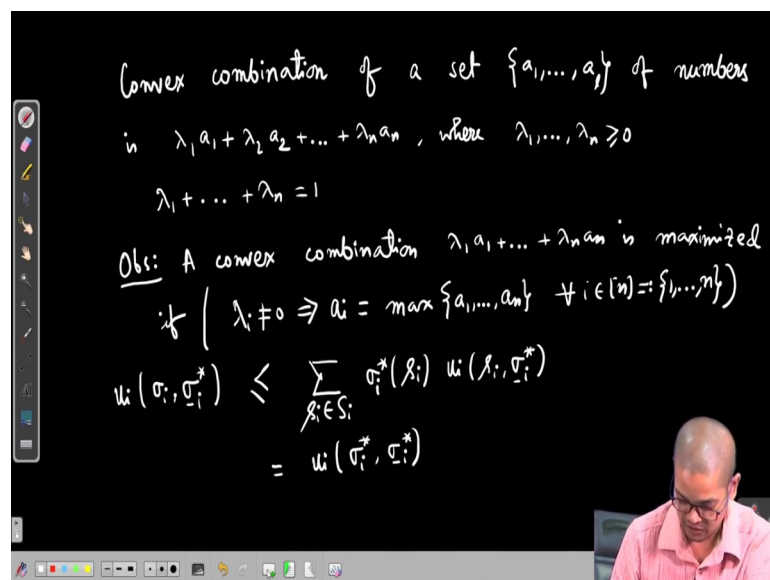 Convex combination of a set {a₁,..., aₙ} of numbers
is λ₁a₁ + λ₂a₂ + ... + λₙaₙ , where λ₁,..., λₙ ⩾ 0
λ₁ + ... + λₙ = 1
Obs: A convex combination λ₁a₁ + ... + λₙaₙ is maximized
if ( λᵢ ≠ 0 ⇒ aᵢ = max {a₁,..., aₙ} ∀ i ∈ [n] =: {1,...,n} )
uᵢ(σᵢ, σ̲ᵢ*) ⩽ ∑_{sᵢ∈Sᵢ} σᵢ*(sᵢ) uᵢ(sᵢ, σ̲ᵢ*)
= uᵢ(σᵢ*, σ̲ᵢ*)